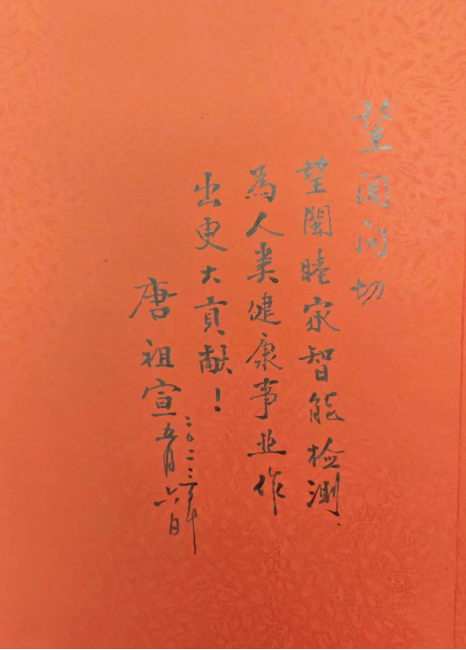 望闻问切
望闔睦家智能检测
為人类健康事业作
出更大貢献！
唐祖宣
二〇二三年
五月六日